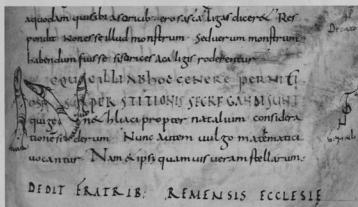 aquodam quisibi a soricib; erosas caligas diceret Res
pondit nonesse illud monstrum. Sed uerum monstrum
habendum fuisse si sorices a caligis roderentur
NEQUE ILLI AB HOC GENERE PERNITI
OSAE SUPERSTITIONIS SEGREGANDI SUNT
qui ge ne hliaci propter natalium considera
tiones dierum Nunc autem uulgo mathematici
uocantur Nam & ipsi quamuis ueram stellarum
DEDIT FRATRIB. REMENSIS ECCLESIE